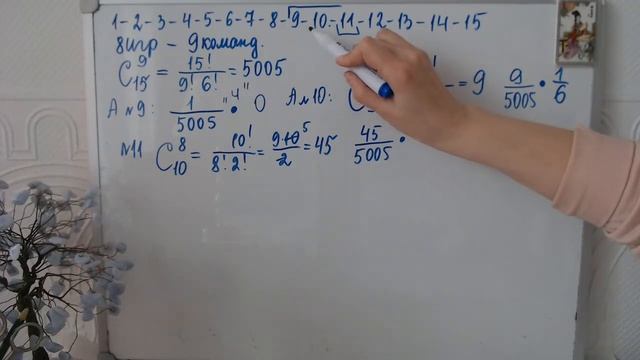 1-2-3-4-5-6-7-8-9-10-11-12-13-14-15
8 игр - 9 команд.
C₁₅⁹ = 15!/9!6! = 5005 = 9 9/5005 · 1/6
А №9: 1/5005 "4" · 0 А №10: C
№11 C₁₀⁸ = 10!/8!2! = 9·10 5/2 = 45 45/5005 ·